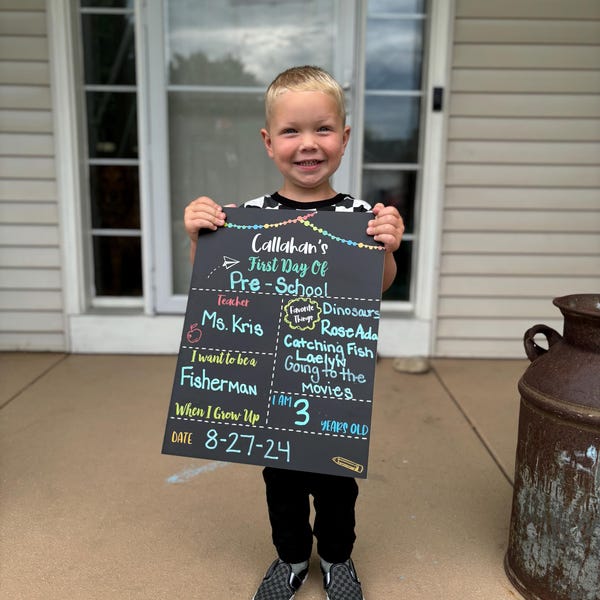 Callahan's
First Day Of
Pre-School
Teacher
Ms. Kris
Favorite
Things
Dinosaurs
Rose Ada
Catching Fish
Laelyn
Going to the
Movies
I want to be a
Fisherman
When I Grow Up
I AM
3
YEARS OLD
DATE
8-27-24